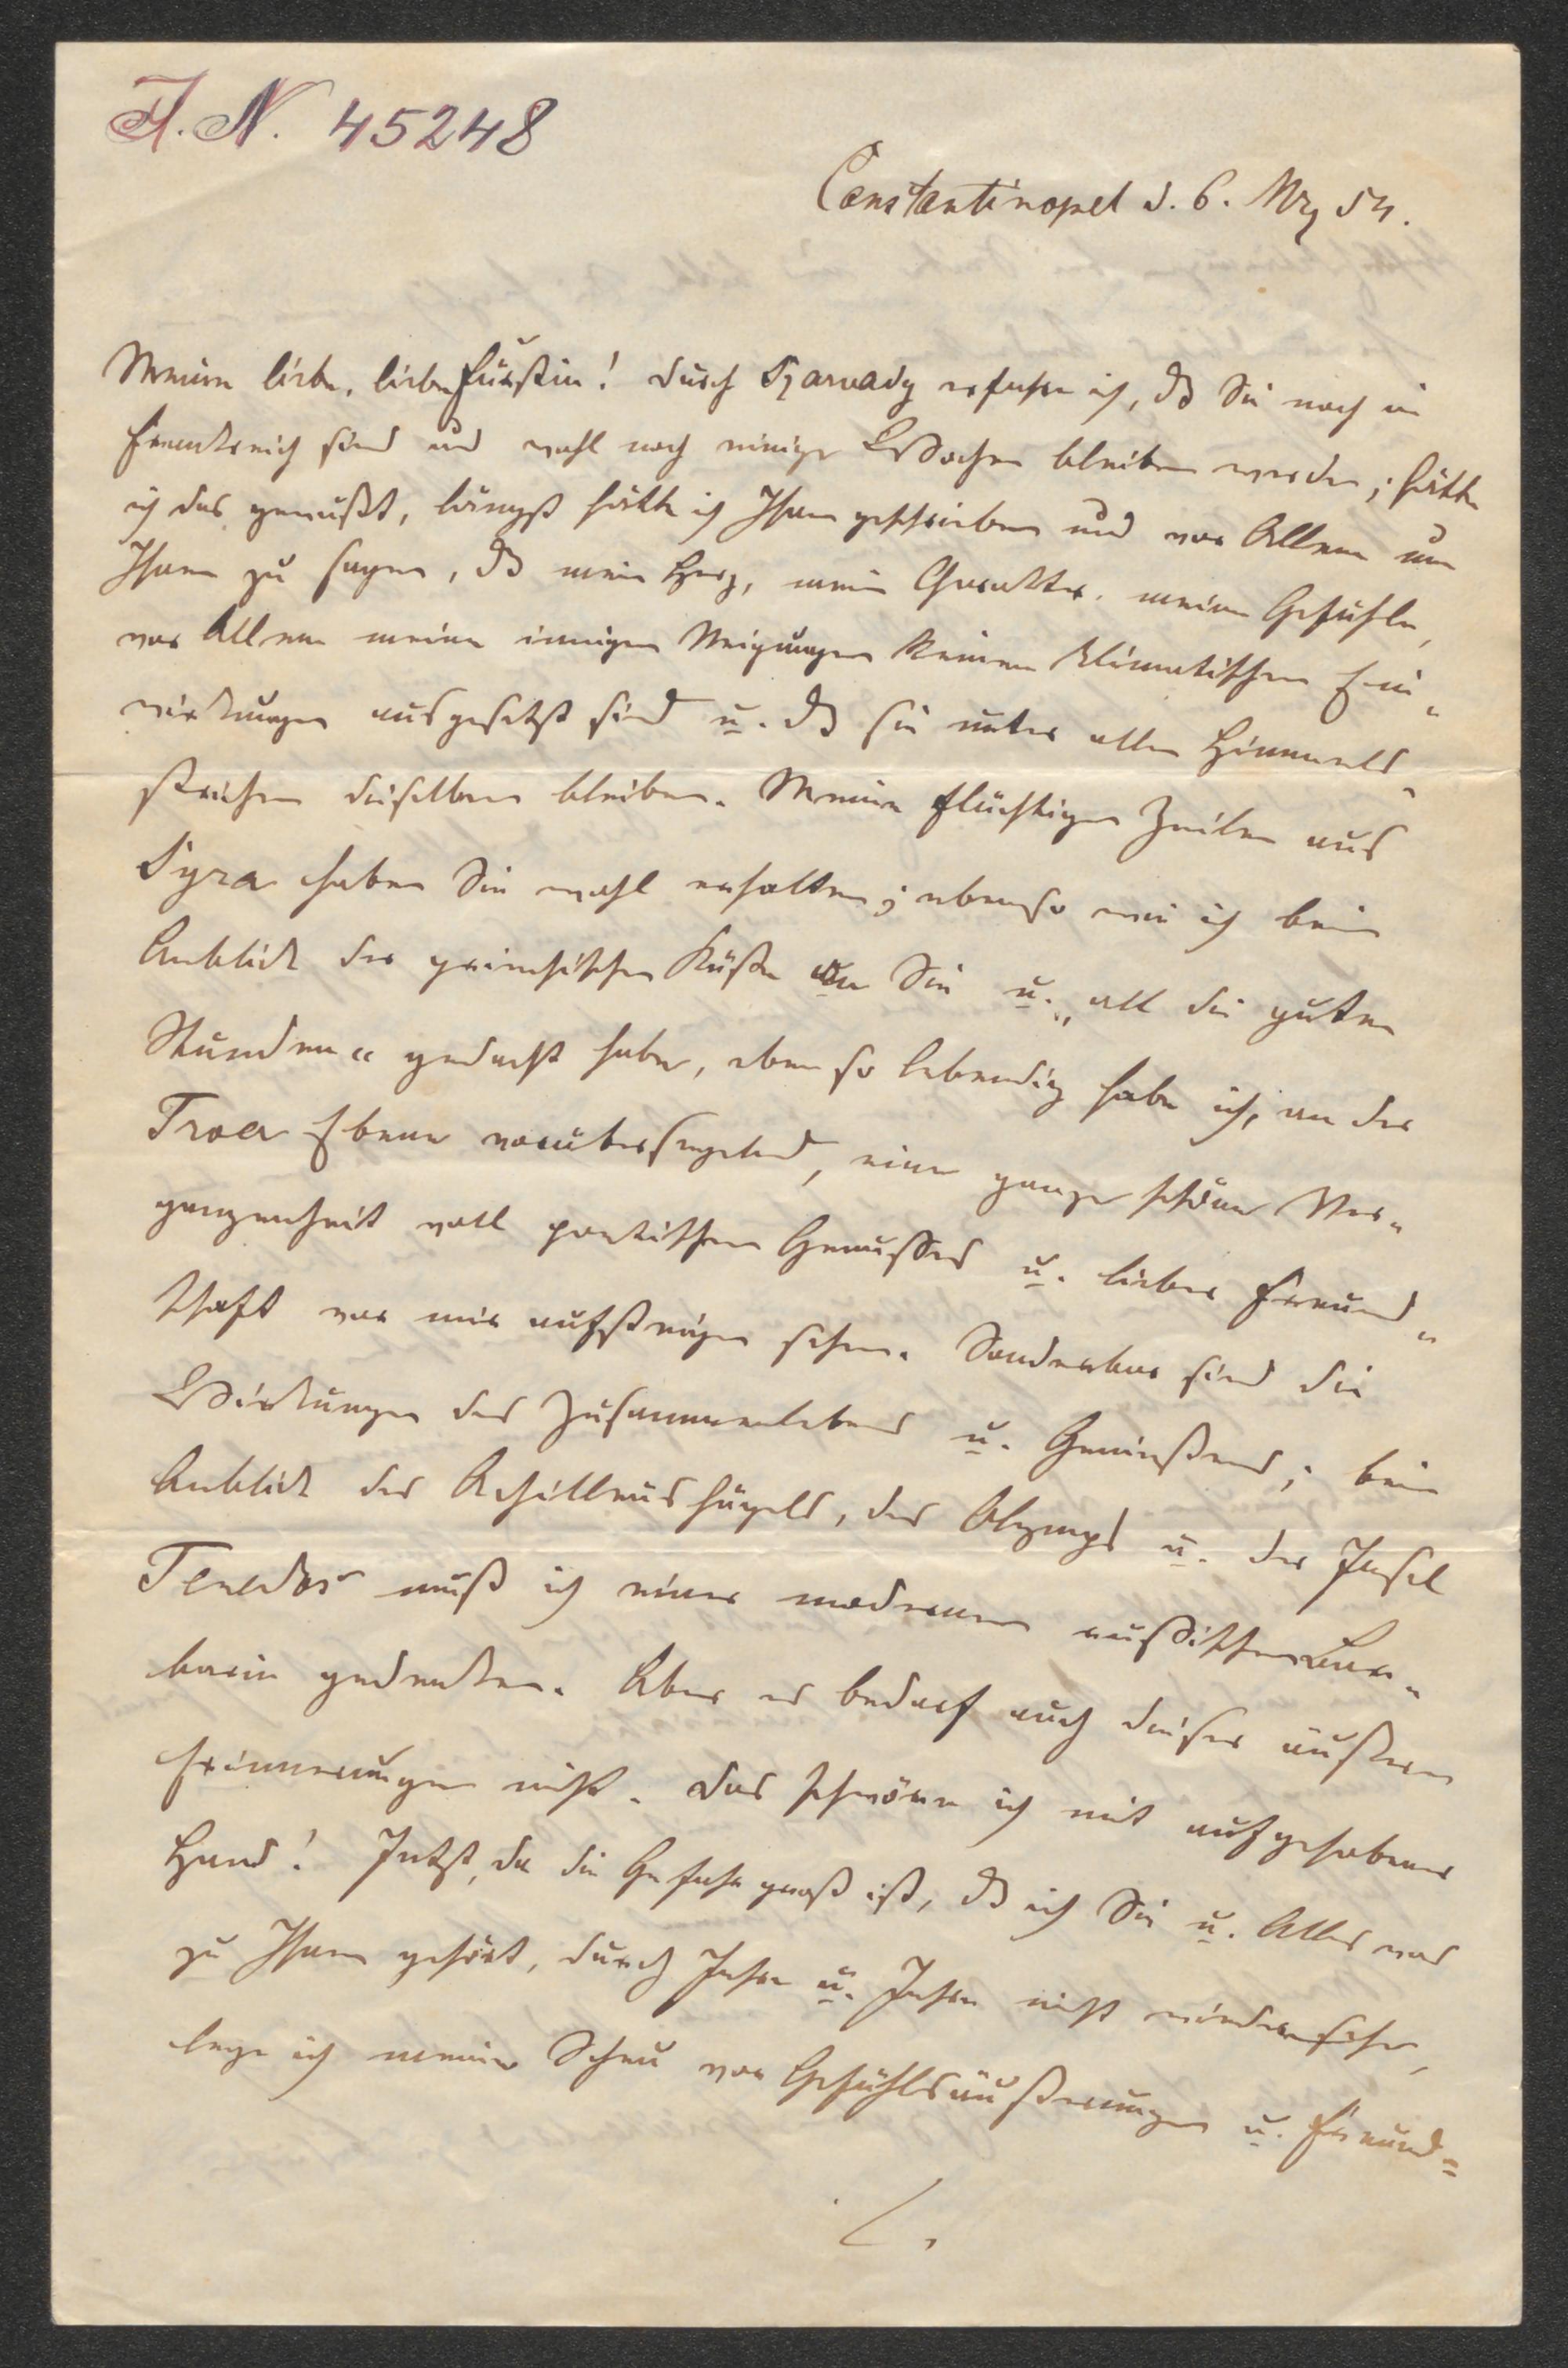 I. N. 45248
Constantinopel d. 6. Mz 54.
Meine liebe, liebe Fürstin! Durch Szarvady erfahre ich, dß Sie noch in
Frankreich sind und wohl noch einige Wochen bleiben werden; hätte
ich das gewußt, längst hätte ich Ihnen geschrieben und vor Allem um
Ihnen zu sagen, dß mein Herz, mein Charakter, meine Gefühle,
vor Allem meine innigen Neigungen keinen klimatischen Ein-
wirkungen ausgesetzt sind u. dß sie unter allen Himmels-
strichen dieselben bleiben. Meine flüchtigen Zeilen aus
Syra haben Sie wohl erhalten; ebenso wie ich beim
Anblick der griechischen Küste an Sie u. „all die guten
Stunden“ gedacht habe, eben so lebendig habe ich, an der
Troer Ebene vorübersegelnd, eine ganze schöne Ver-
gangenheit voll poetischen Genusses u. lieber Freund-
schaft vor mir aufsteigen sehen. Sonderbar sind die
Wirkungen des Zusammenlebens u. Genießens; beim
Anblick des Achilleushügels, des Olymps u. der Insel
Tenedos muß ich einer modernen russischen Bar-
barin gedenken. Aber es bedarf auch dieser äußern
Erinnerungen nicht. Das schwöre ich mit aufgehobener
Hand! Jetzt, da die Gefahr groß ist, dß ich Sie u. Alles was
zu Ihnen gehört, durch Jahre u. Jahre nicht wiedersehe,
lege ich meine Scheu vor Gefühlsäußerungen u. Freund=